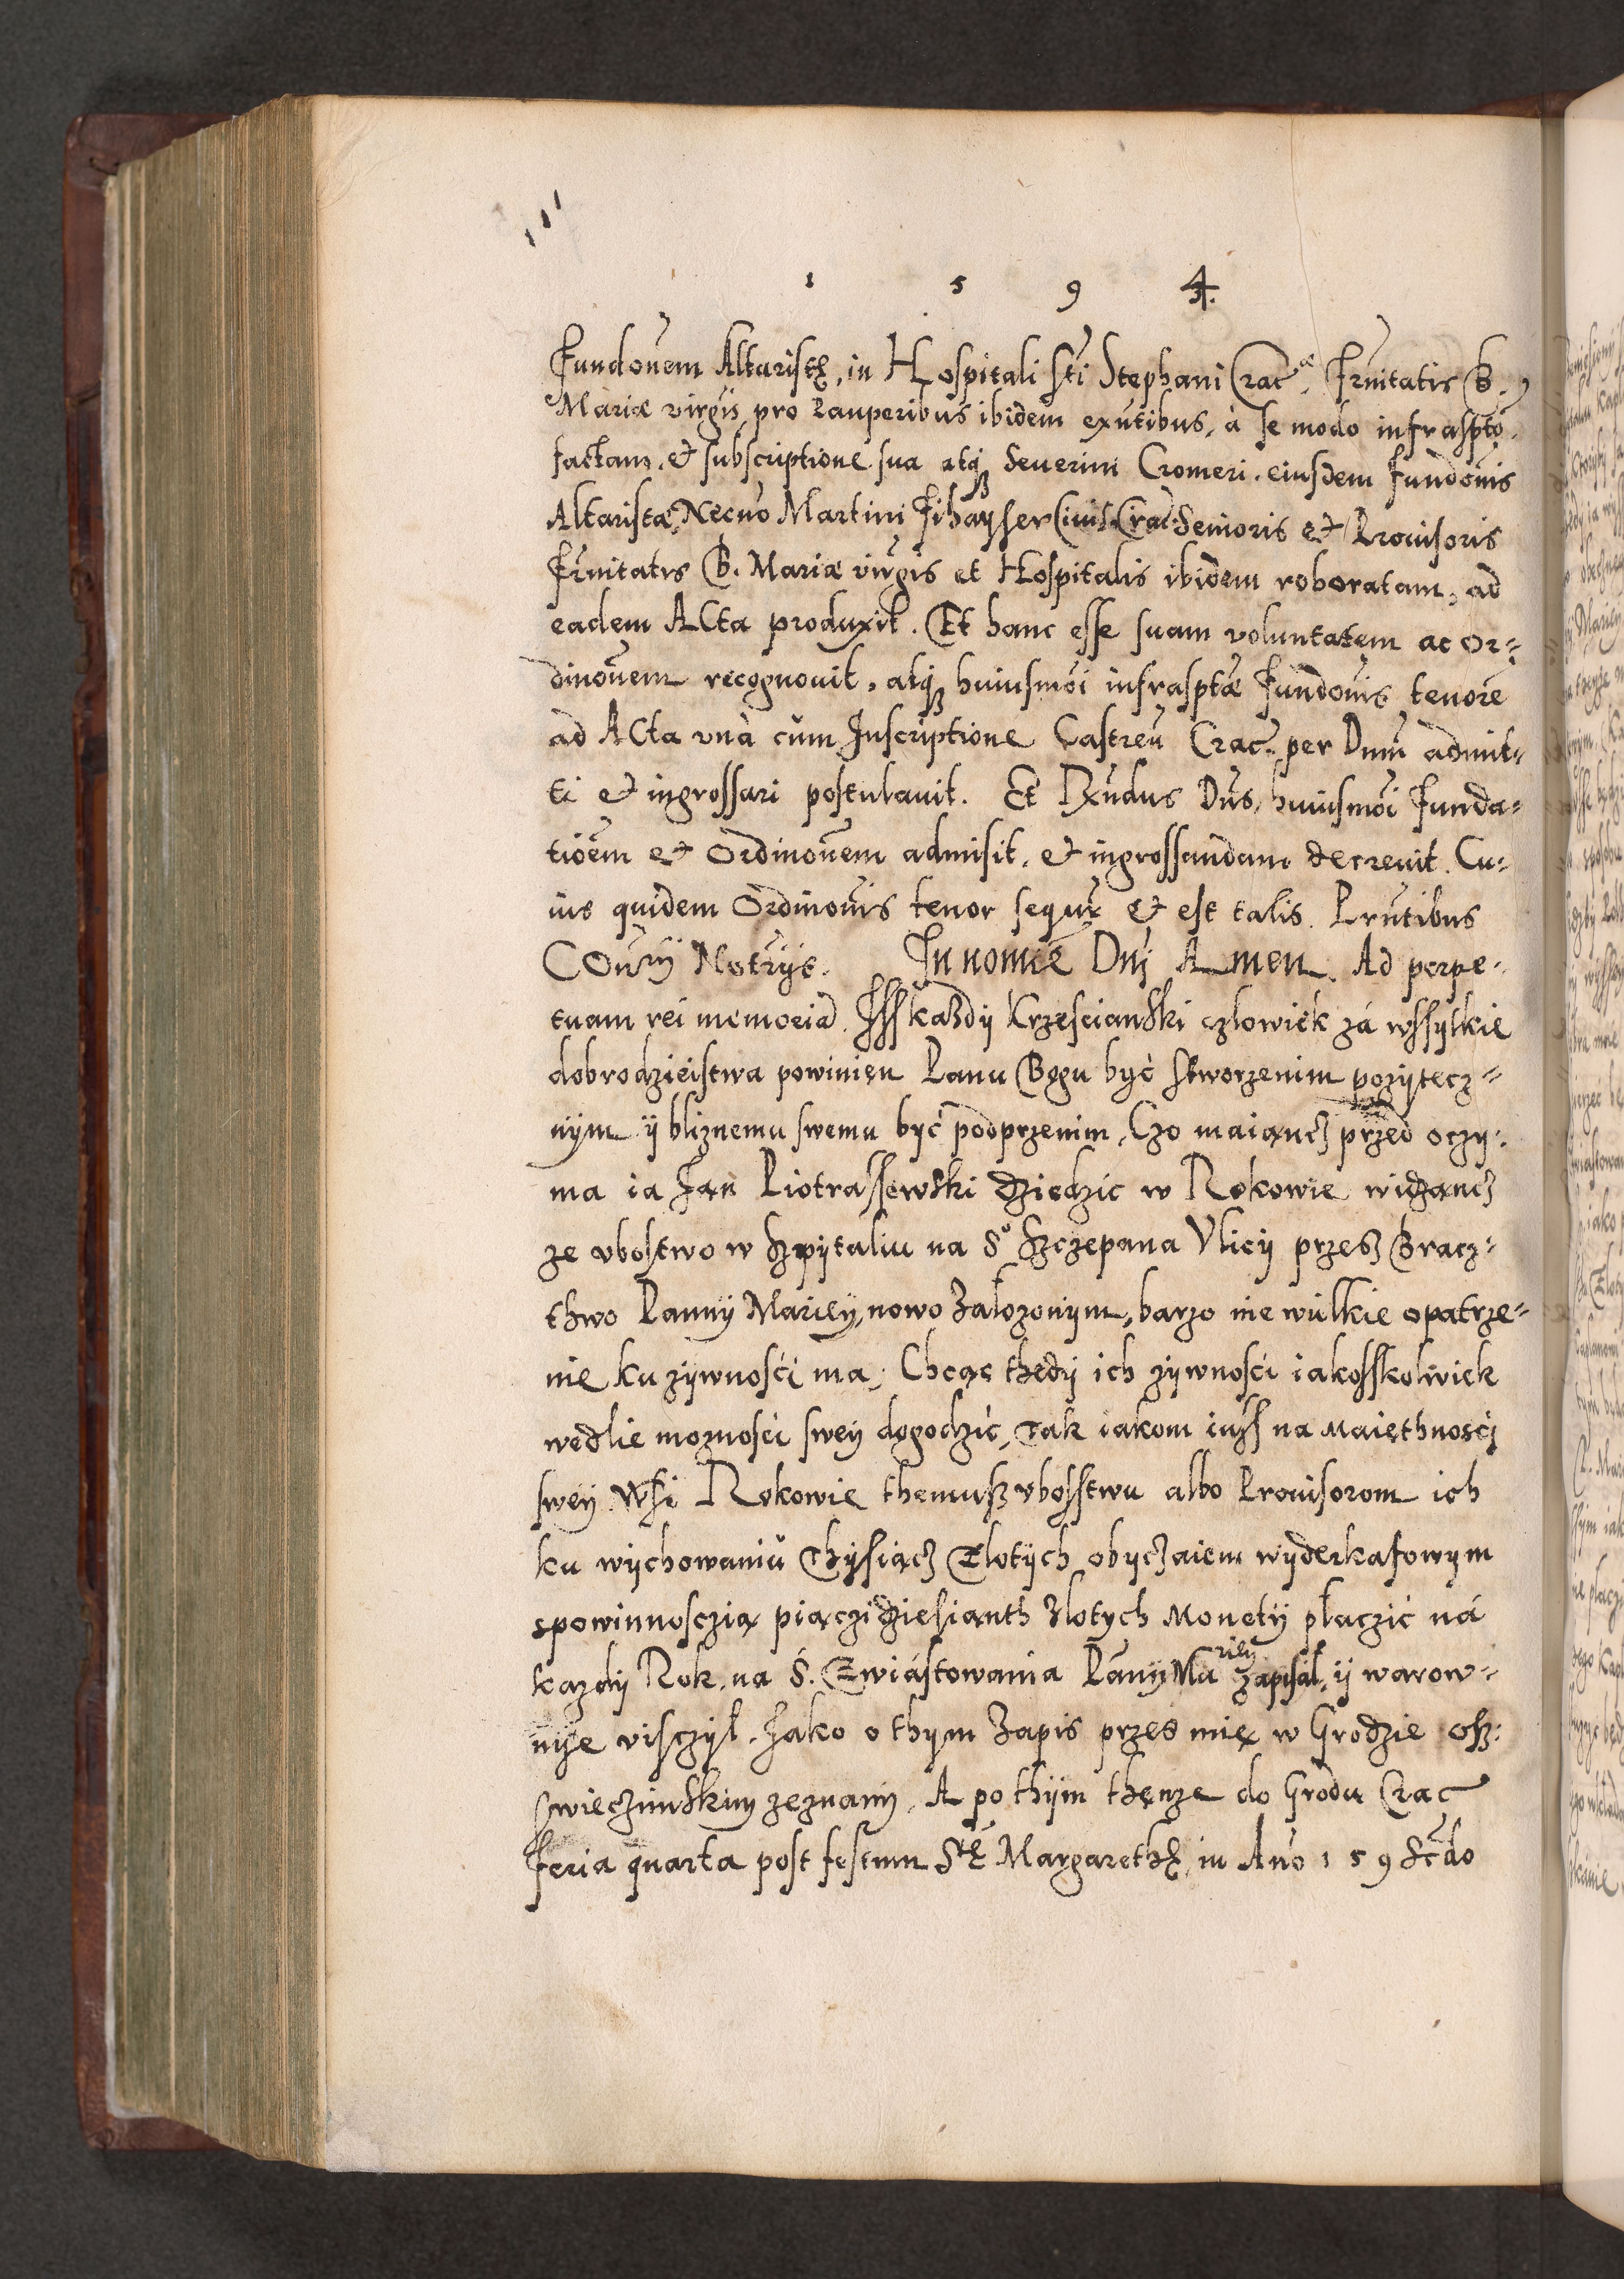 1 5 9 4.
Fundoñem Altaristę, in Hospitali Sti Stephani Cracae. Frnitatis B.
Mariæ virgis, pro Pauperibus ibidem exñtibus, à se modo infrasptò
factam, et subscriptione sua atq3 Seuerini Cromeri, eiusdem Fundoñis
Altaristæ, Necnõ Martini Fihayser Ciuis Crac: Senioris et Prouisoris
Frnitatis B. Mariæ virgis et Hospitalis ibidem roboratam, ad
eadem ACta produxit. Et hanc esse suam voluntatem ac Or=
dinoñem recognouit, atq3 huiusmõi infrasptæ Fundoñis tenorẽ
ad ACta vnà cũm Inscriptione Castreñ Crac. per Dnũ admit=
ti et ingrossari postulauit. Et Rxñdus Dñs, huiusmõi Funda=
tioẽm et Ordinoñem admisit, et ingrossandam decreuit. Cu=
ius quidem Ordinoñis tenor sequr̃ et est talis. Prñtibus
COurỹ Notrỹs. In nomiẽ Dnj Amen. Ad perpe=
tuam rei memoriã. Iss każdÿ Krzescianski człowiek zá wssÿtkie
dobrodzieistwa powinien Panu Bogu być stworzenim pozÿtecz=
nÿm ÿ bliznemu swemu być podprzenim, Czo maiąncz przed oczÿ=
ma ia Jan Piotrassewski dziedzic w Rokowie widzancz
ze vbostwo w Szpÿtaliu na So Szczepana Vlicÿ przes Bracz=
thwo Pannÿ Mariey, nowo Załozonÿm, barzo nie wielkie opatrze=
nie ku zÿwności ma, Chcąc thedÿ ich zÿwności iakosskolwiek
wedlie moznosci sweÿ dogodzić, Tak iakom iuss na Maiethnosci
swey Wsi Rokowie themusz vbosstwu albo Prouisorom ich
ku wÿchowaniu Thÿsiącz Złotÿch obÿczaiem wÿderkafowym
spowinnosczią piączidziesianth Złotych Monetÿ płaczić ná
kazdÿ Rok, na S. Zwiástowania PánÿMariey zapisał, ÿ warow=
nÿe visczył. Jako o thym Zapis przes mię w Grodzie Osz=
swieczimskim zeznanÿ, A po thÿm thenze do Grodu Crac
Feria quarta post festum Stę Margarethę, in Anõ 1 5 9 Scdo